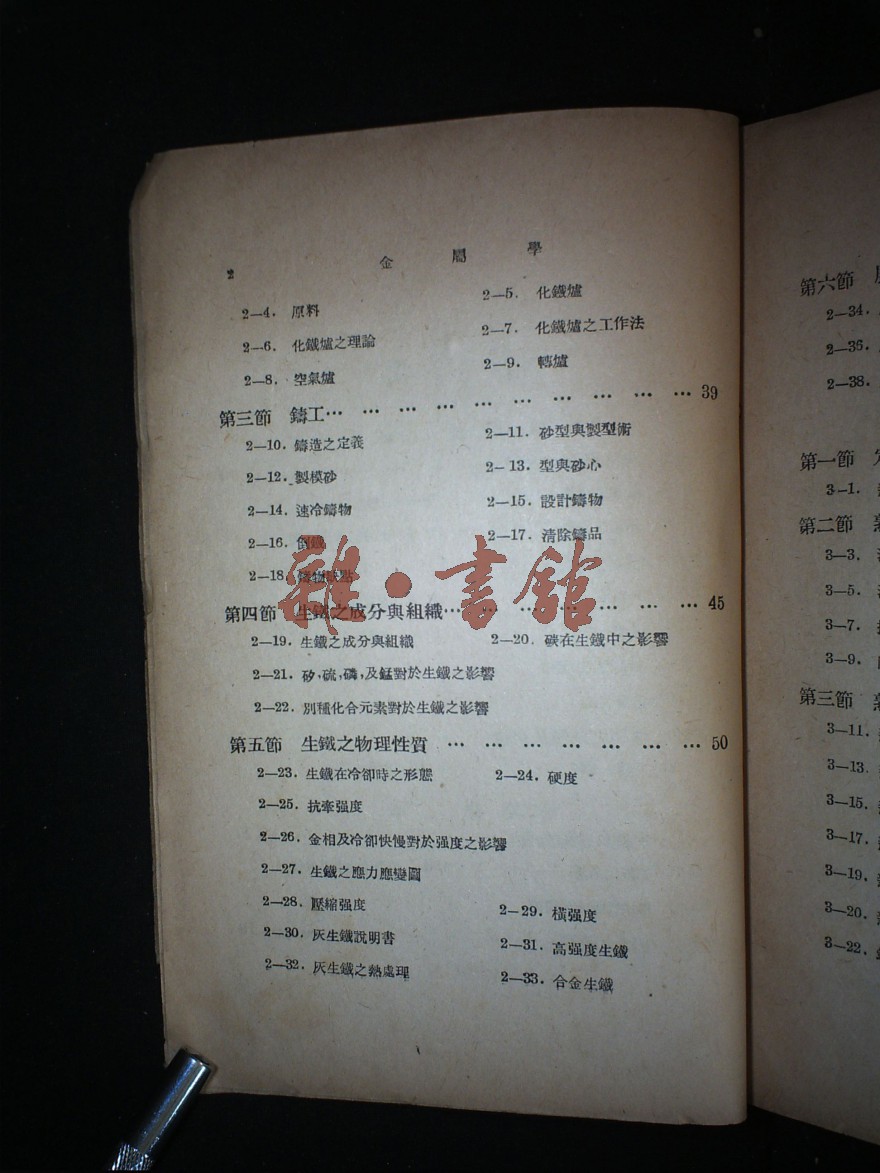 2
金屬學
2—4. 原料 2—5. 化鐵爐
2—6. 化鐵爐之理論 2—7. 化鐵爐之工作法
2—8. 空氣爐 2—9. 轉爐
第三節 鑄工… … … … … … … … … … 39
2—10. 鑄造之定義 2—11. 砂型與製型術
2—12. 製模砂 2—13. 型與砂心
2—14. 速冷鑄物 2—15. 設計鑄物
2—16. 2—17. 清除鑄品
2—18. 鑄物缺點
雜·書館
第四節 生鐵之成分與組織… … … … … … … 45
2—19. 生鐵之成分與組織 2—20. 碳在生鐵中之影響
2—21. 矽,硫,磷,及錳對於生鐵之影響
2—22. 別種化合元素對於生鐵之影響
第五節 生鐵之物理性質 … … … … … … … 50
2—23. 生鐵在冷卻時之形態 2—24. 硬度
2—25. 抗牽强度
2—26. 金相及冷卻快慢對於强度之影響
2—27. 生鐵之應力應變圖
2—28. 壓縮强度 2—29. 橫强度
2—30. 灰生鐵說明書 2—31. 高强度生鐵
2—32. 灰生鐵之熱處理 2—33. 合金生鐵
第六節
2—34.
2—36.
2—38.
第一節
3—1.
第二節
3—3.
3—5.
3—7.
3—9.
第三節
3—11.
3—13.
3—15.
3—17.
3—19.
3—20.
3—22.